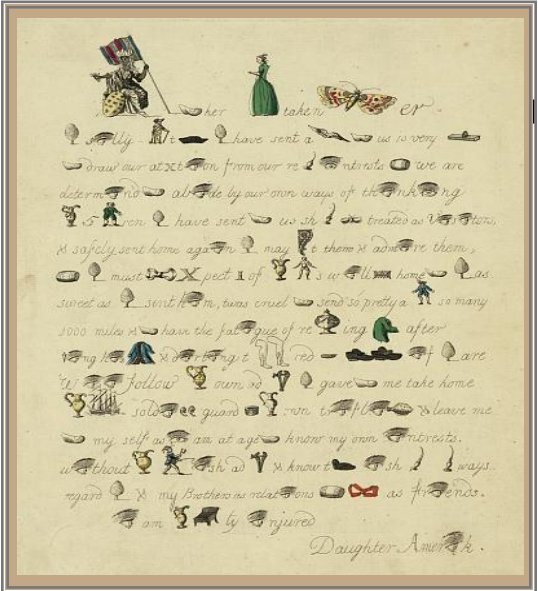 her taken er.
s lly t have sent a us is very
draw our at t on from our re ntrests we are
determ nd ab de by our own ways of th nk ng
5 ren have sent us sh treated as V s tors,
& safely sent home aga n may t them & adm re them,
must X pect 1 of s w ll home as
sweet as sent h m, twas cruel send so pretty a so many
1000 miles & have the fat gue of re ing after
ng h & d rt ng t red f are
W Follow own ad gave me take home
sold guard own & leave me
my self as am at age know my own ntrests.
w thout sh ad & know t sh ways
regard & my Brothers as relat ons as fr ends.
am ty njured
Daughter Amer k.